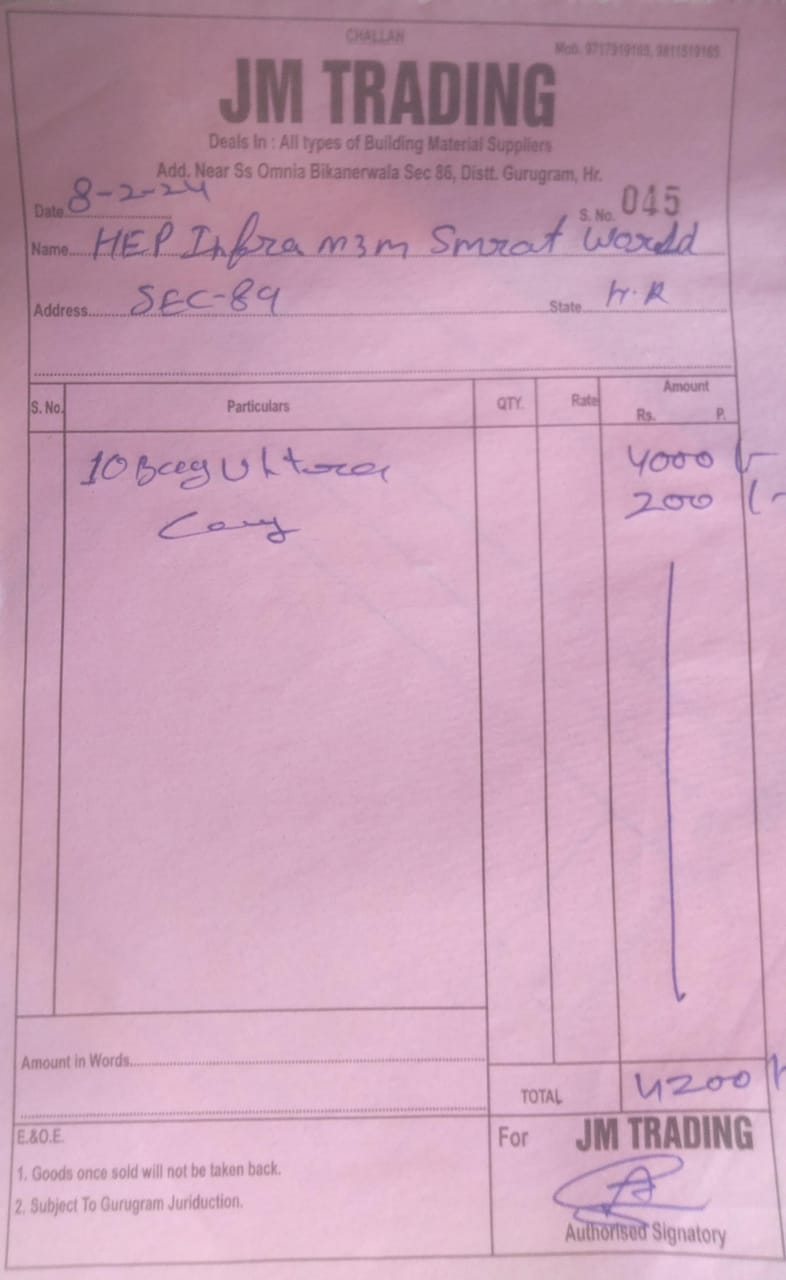 CHALLAN
Mob. 9717919165, 9811519165
JM TRADING
Deals In : All types of Building Material Suppliers
Add. Near Ss Omnia Bikanerwala Sec 86, Distt. Gurugram, Hr.
Date 8-2-24
S. No. 045
Name HEP Infra M3M Smrat World
Address SEC-89 State H.R
S. No. Particulars QTY. Rate Amount
Rs. P.
10 Bag Ultra 4000/-
200/-
Amount in Words
TOTAL 4200/-
E.&O.E. For JM TRADING
1. Goods once sold will not be taken back.
2. Subject To Gurugram Juriduction.
Authorised Signatory